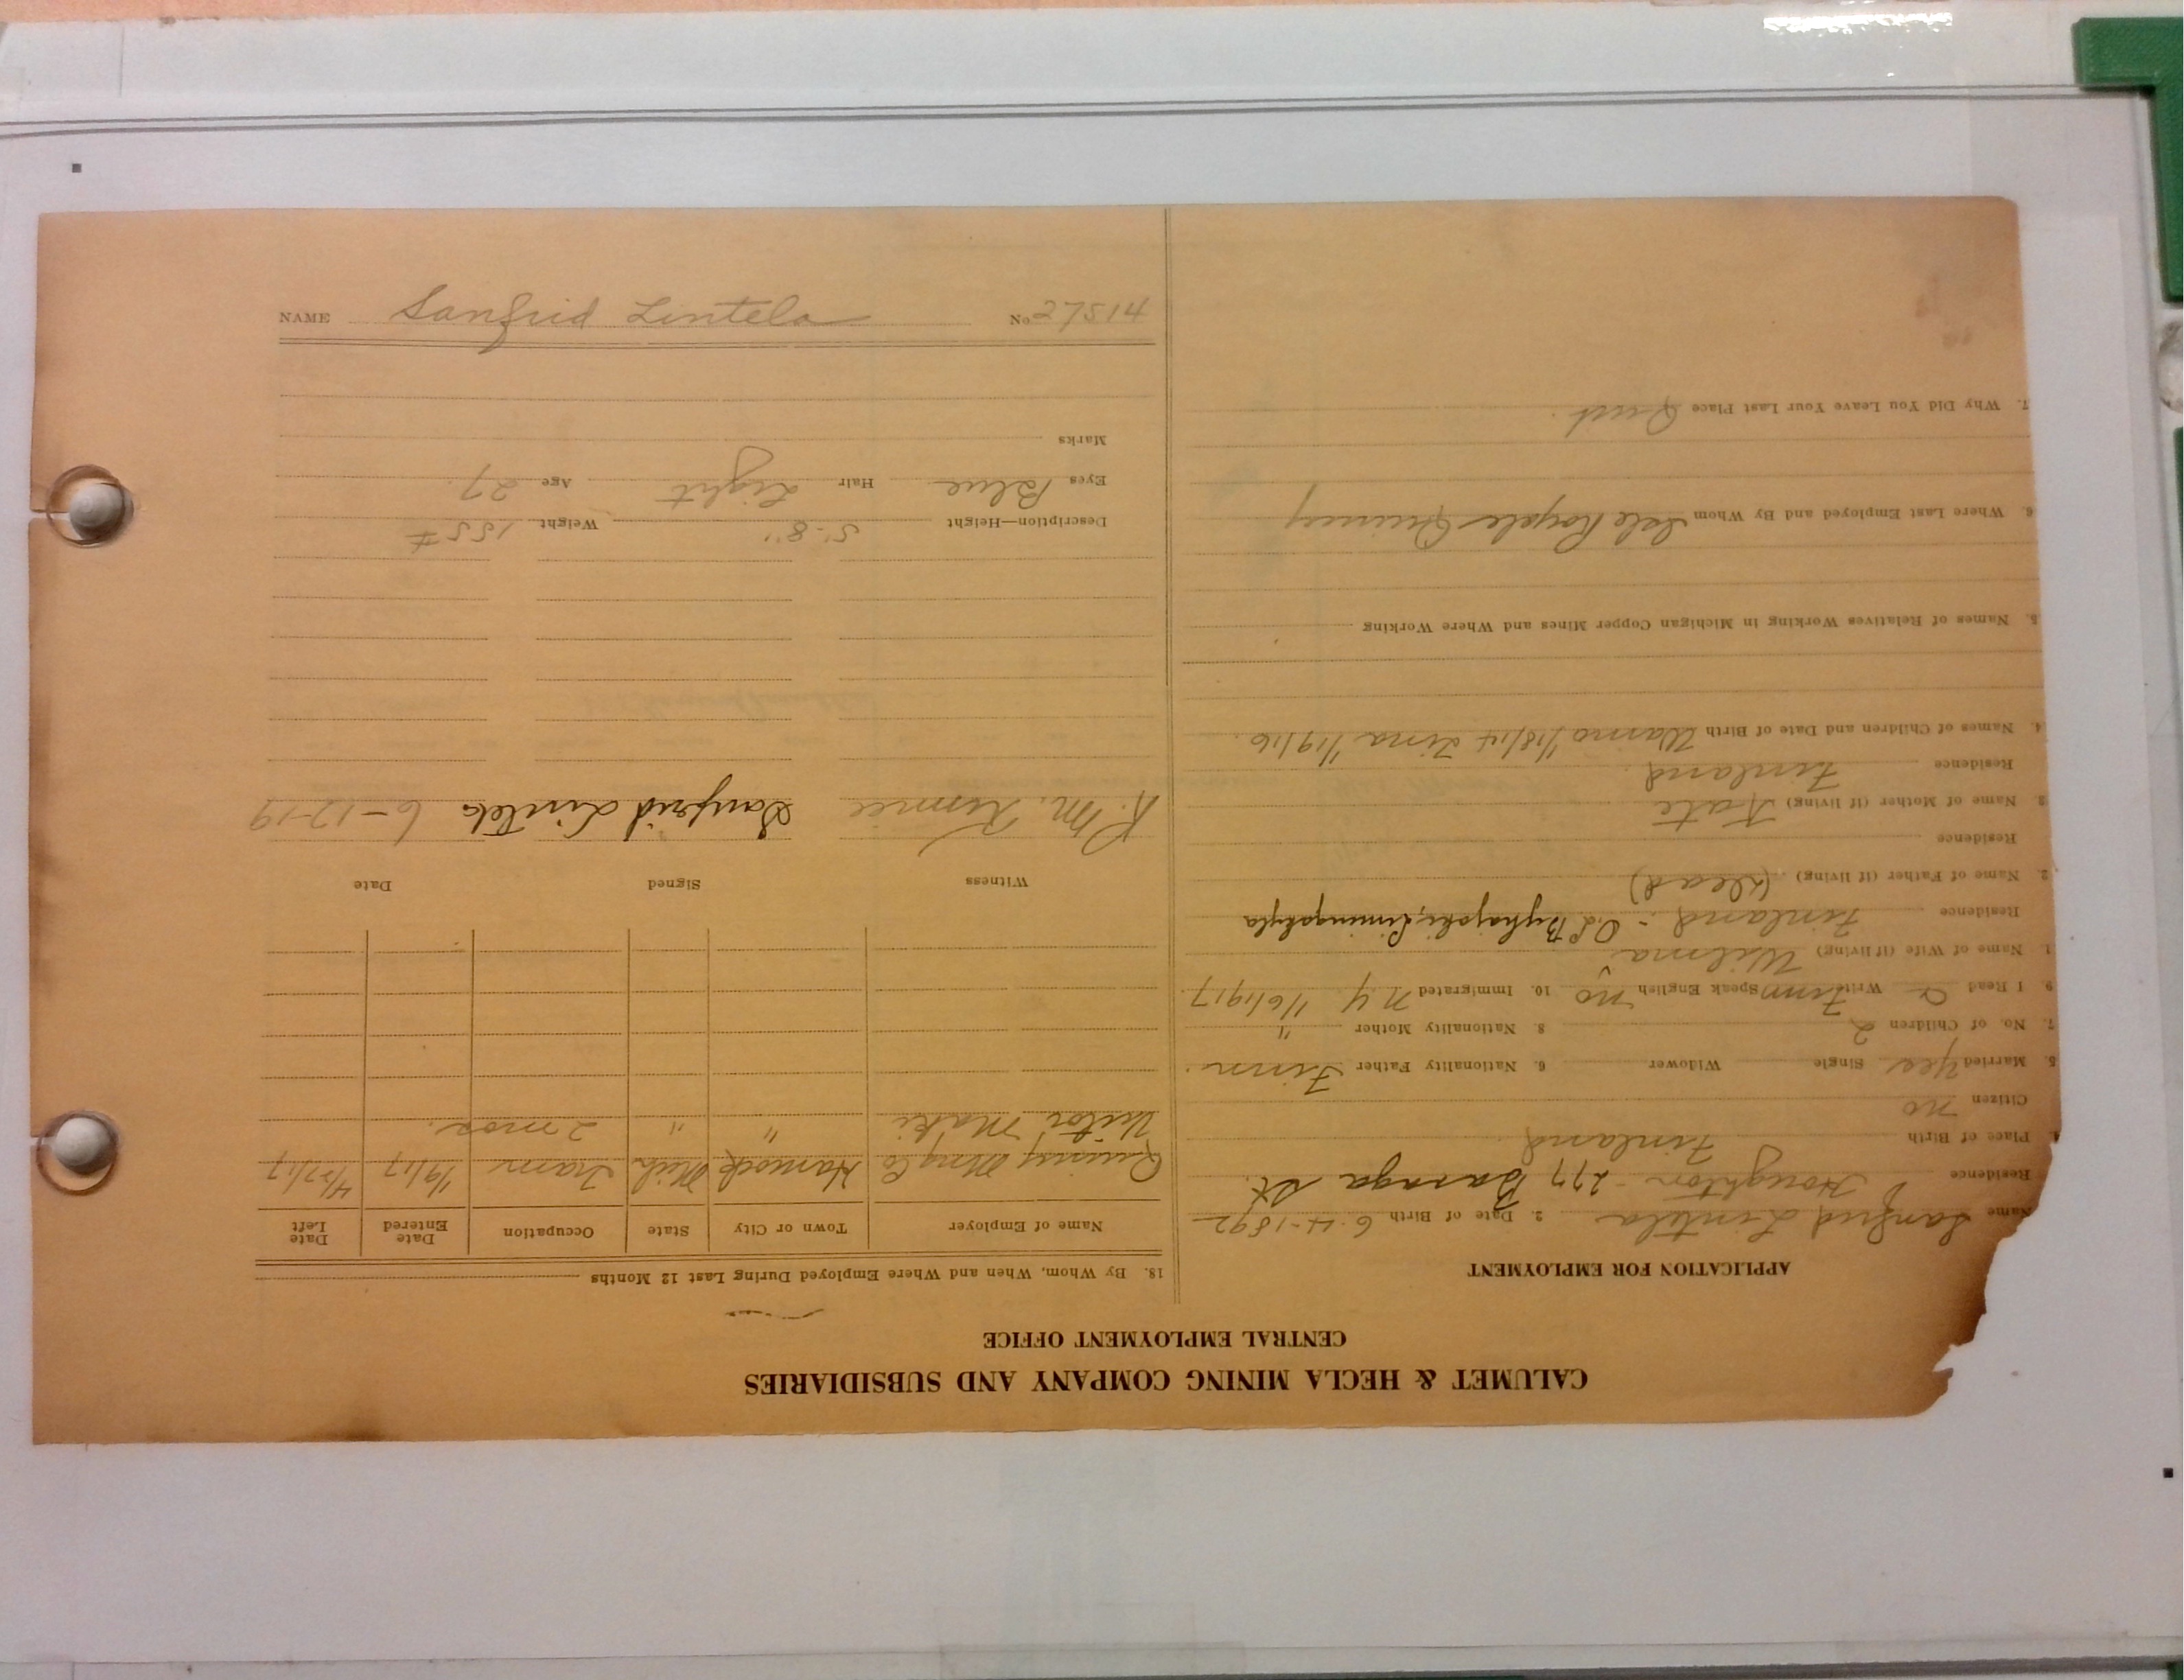 CALUMET & HECLA MINING COMPANY AND SUBSIDIARIES
CENTRAL EMPLOYMENT OFFICE
APPLICATION FOR EMPLOYMENT
Name Sanfrid Lintela 2. Date of Birth 6-4-1892
Residence Houghton - 277 Baraga St.
Place of Birth Finland
Citizen no
5. Married yes Single Widower 6. Nationality Father Finn
7. No. of Children 2 8. Nationality Mother "
9. I Read & Write Finn Speak English no 10. Immigrated N.Y 1/6/1917
1. Name of Wife (if living) Wilma
Residence Finland - O.L.
2. Name of Father (if living) (dead)
Residence
3. Name of Mother (if living) Kate
Residence Finland
4. Names of Children and Date of Birth 1/18/14 Lina 1/19/16
5. Names of Relatives Working in Michigan Copper Mines and Where Working
6. Where Last Employed and By Whom Isle Royale Quincy
7. Why Did You Leave Your Last Place Quit
18. By Whom, When and Where Employed During Last 12 Months
Name of Employer Town or City State Occupation Date Entered Date Left
Quincy Mng Co Hancock Mich Tram 1/9/17 4/27/17
Victor Maki " " 2 mos.
Witness Signed Date
R. M. Sanfrid Lintela 6-12-19
Description—Height 5-8" Weight 155 #
Eyes Blue Hair Light Age 27
Marks
NAME Sanfrid Lintela No 27514